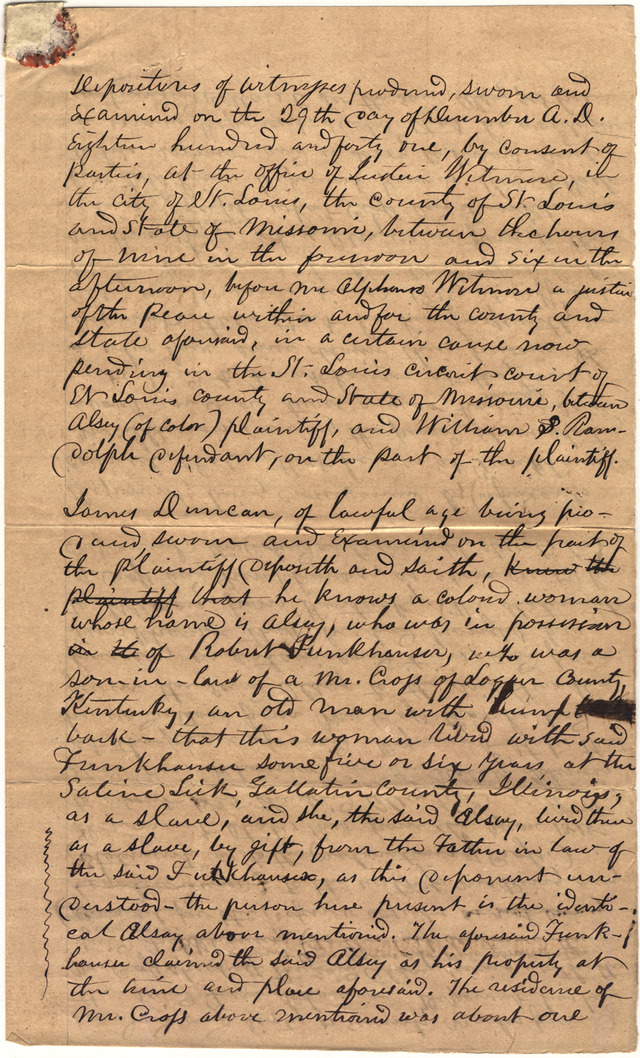 Depositures of witnesses produced, sworn and
Examined on the 29th day of December A.D.
Eighteen hundred and forty one, by consent of
parties, at the office of Justice Wetmore, in
the city of St. Louis, the county of St. Louis
and State of Missouri, between the hours
of nine in the forenoon and six in the
afternoon, before me Alphonso Wetmore a justice
of the Peace within and for the county and
state aforesaid, in a certain cause now
pending in the St. Louis circuit court of
St Louis county and State of Missouri, between
Alsey (of color) plaintiff, and William S. Ran-
dolph defendant, on the part of the plaintiff.
James Duncan, of lawful age being pro-
duced, sworn and Examined on the part of
the plaintiff deposeth and saith, knew the
plaintiff that he knows a colored woman
whose name is Alsey, who was in possession
in the of Robert Funkhauser, who was a
son-in-law of a Mr. Cross of Logan County,
Kentucky, an old man with hump
back - that this woman lived with said
Funkhauser some five or six years, at the
Saline Lick, Gallatin County, Illinois,
as a slave, and she, the said Alsay, lived there
as a slave, by gift, from the Father in law of
the said Funkhauser, as this deponent un-
derstood - the person here present is the identi-
cal Alsay above mentioned. The aforesaid Funk-
hauser claimed the said Alsey as his property at
the time and place aforesaid. The residence of
Mr. Cross above mentioned was about one